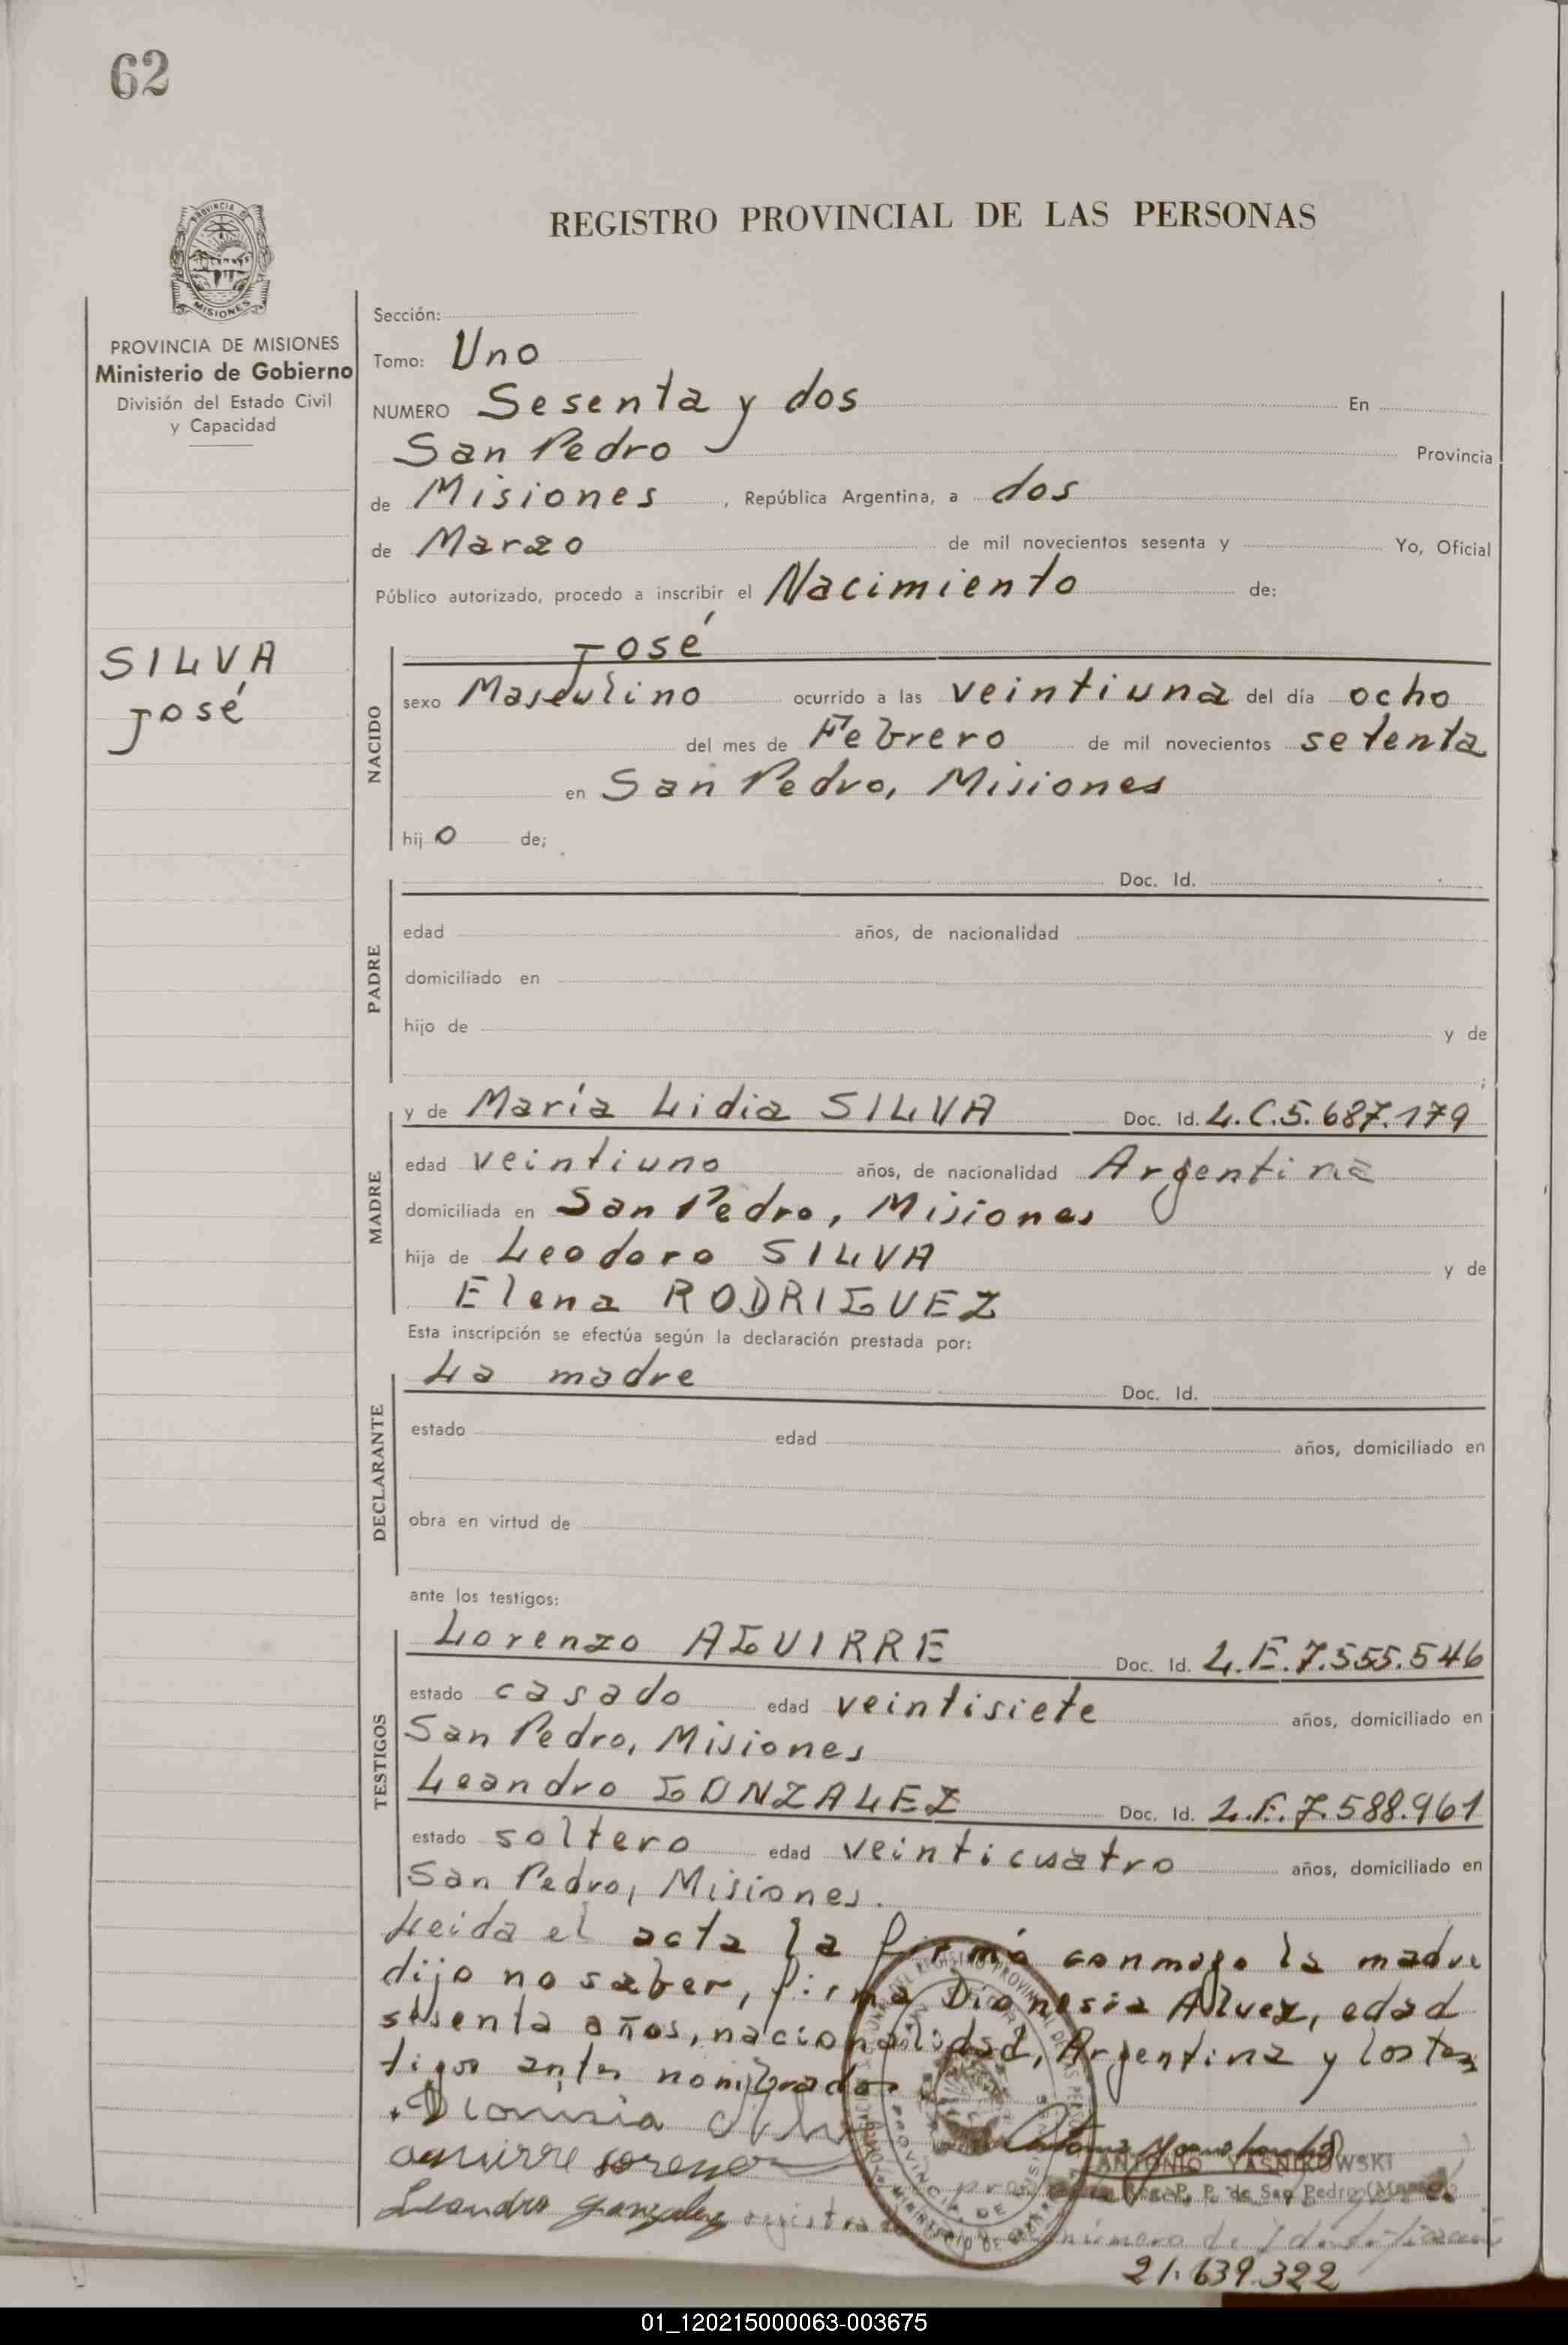 62
REGISTRO PROVINCIAL DE LAS PERSONAS
PROVINCIA DE
MISIONES
PROVINCIA DE MISIONES
Ministerio de Gobierno
División del Estado Civil
y Capacidad
SILVA
José
Sección:
Tomo: Uno
NUMERO Sesenta y dos En
San Pedro Provincia
de Misiones, República Argentina, a dos
de Marzo de mil novecientos sesenta y Yo, Oficial
Público autorizado, procedo a inscribir el Nacimiento de:
José
NACIDO
sexo Masculino ocurrido a las veintiuna del día ocho
del mes de Febrero de mil novecientos setenta
en San Pedro, Misiones
hijo de;
PADRE
Doc. Id.
edad años, de nacionalidad
domiciliado en
hijo de y de
;
MADRE
y de María Lidia SILVA Doc. Id. L.C.5.687.179
edad veintiuno años, de nacionalidad Argentina
domiciliada en San Pedro, Misiones
hija de Leodoro SILVA y de
Elena RODRIGUEZ
Esta inscripción se efectúa según la declaración prestada por:
DECLARANTE
La madre Doc. Id.
estado edad años, domiciliado en
obra en virtud de
ante los testigos:
TESTIGOS
Lorenzo AGUIRRE Doc. Id. L.E.7.555.546
estado casado edad veintisiete años, domiciliado en
San Pedro, Misiones
Leandro GONZALEZ Doc. Id. L.E.7.588.961
estado soltero edad veinticuatro años, domiciliado en
San Pedro, Misiones.
Leida el acta la firmó conmigo la madre
dijo no saber, firma Dionesia Alvez, edad
sesenta años, nacionalidad, Argentina y los tes
tigos antes nombrados
Dionisia
aguirre lorenzo
ANTONIO YASNIKOWSKI
R. P. P. de San Pedro
Leandro Gonzalez
número de Identificación
21.639.322
01_120215000063-003675